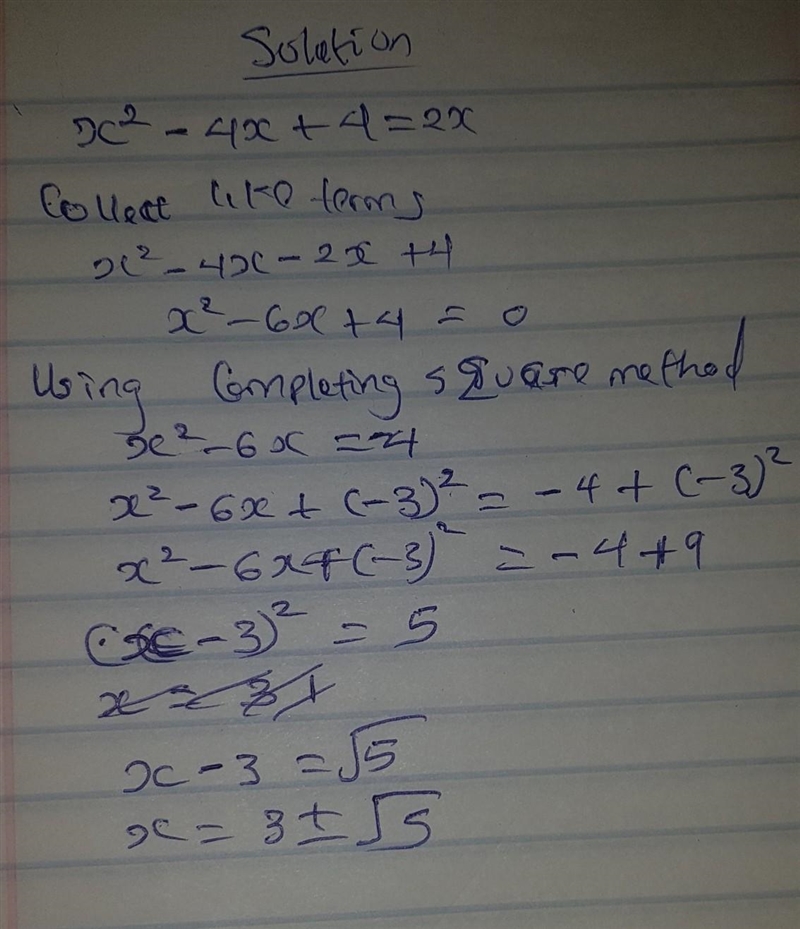 Solution
x² - 4x + 4 = 2x
Collect like terms
x² - 4x - 2x + 4
x² - 6x + 4 = 0
Using Completing square method
x² - 6x = -4
x² - 6x + (-3)² = -4 + (-3)²
x² - 6x + (-3)² = -4 + 9
(x - 3)² = 5
x = 3 +
x - 3 = √5
x = 3 ± √5